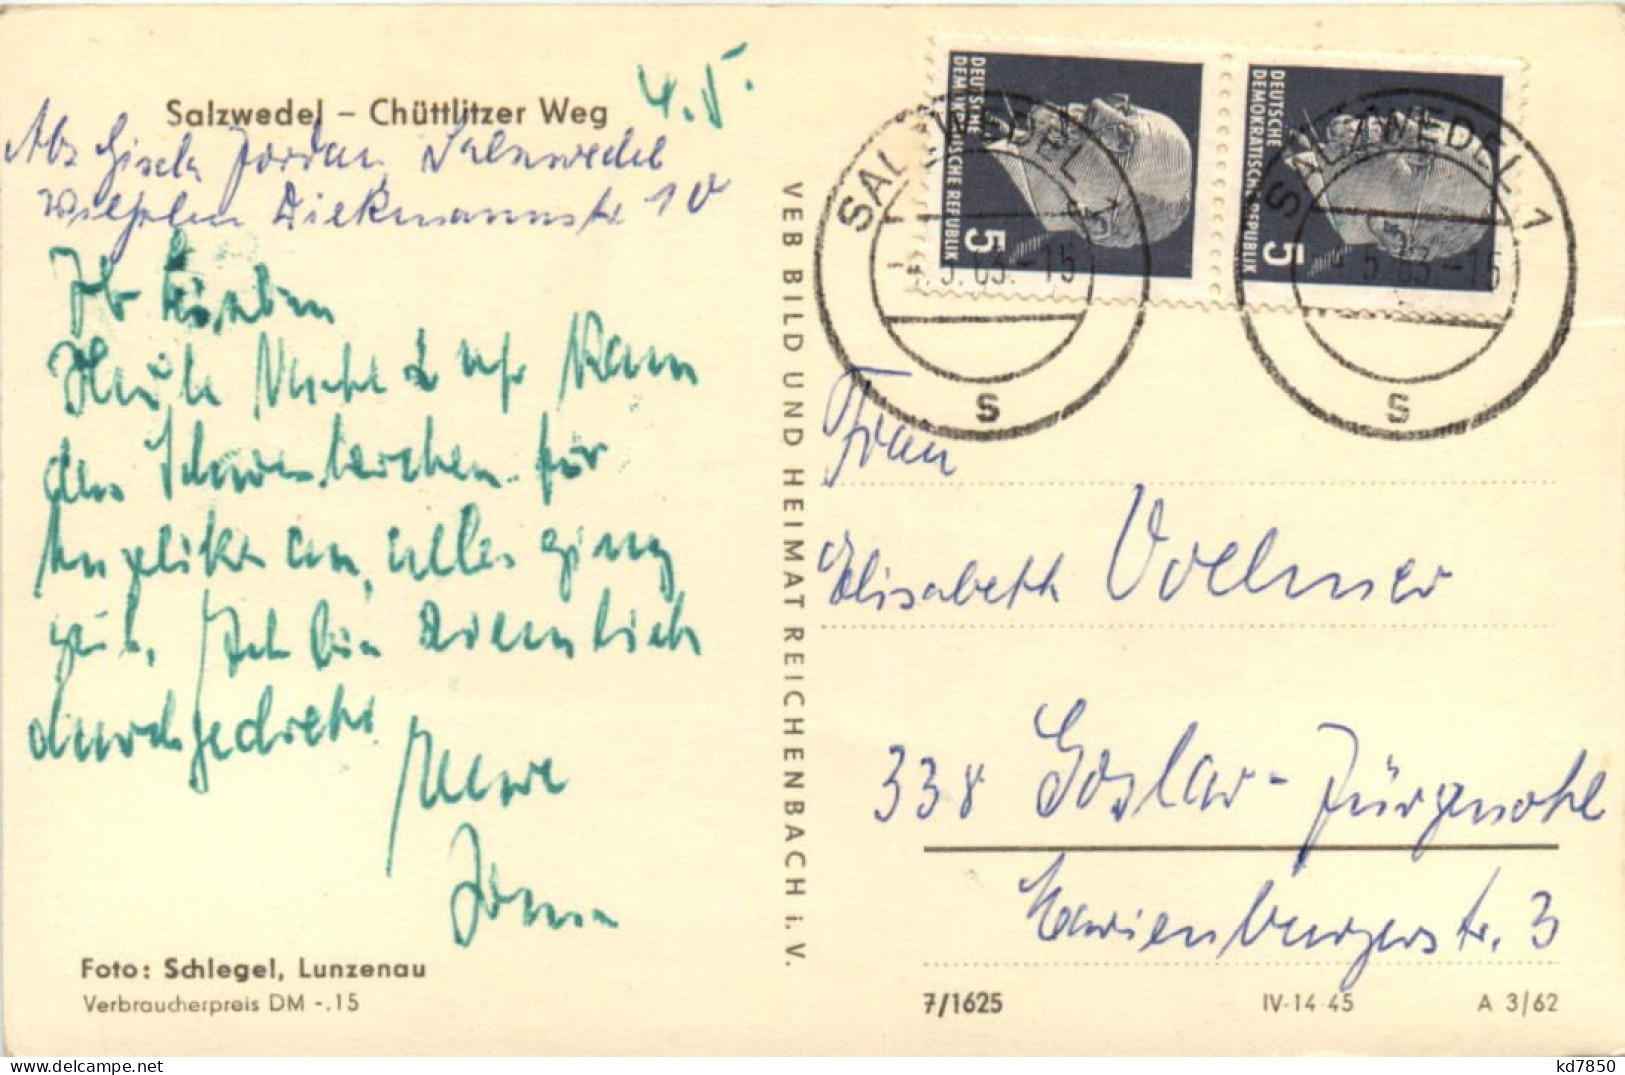 Salzwedel – Chüttlitzer Weg
4.5.
Abs Gisela Jordan, Salzwedel
Wilhelm Dieckmannstr. 10
Ihr Lieben
Heute Nacht 2 Uhr kam
das Schwesterchen für
Angelika an, alles ging
gut. Ich bin ziemlich
durchgedreht
Eure
Foto: Schlegel, Lunzenau
Verbraucherpreis DM -.15
VEB BILD UND HEIMAT REICHENBACH i. V.
DEUTSCHE
DEMOKRATISCHE REPUBLIK
5
DEUTSCHE
DEMOKRATISCHE REPUBLIK
5
SALZWEDEL 1
5.63.-15
s
SALZWEDEL 1
5.63-15
s
Frau
Elisabeth Vollmer
338 Goslar-Jürgenohl
Marienburgerstr. 3
7/1625
IV-14-45
A 3/62
kd7850